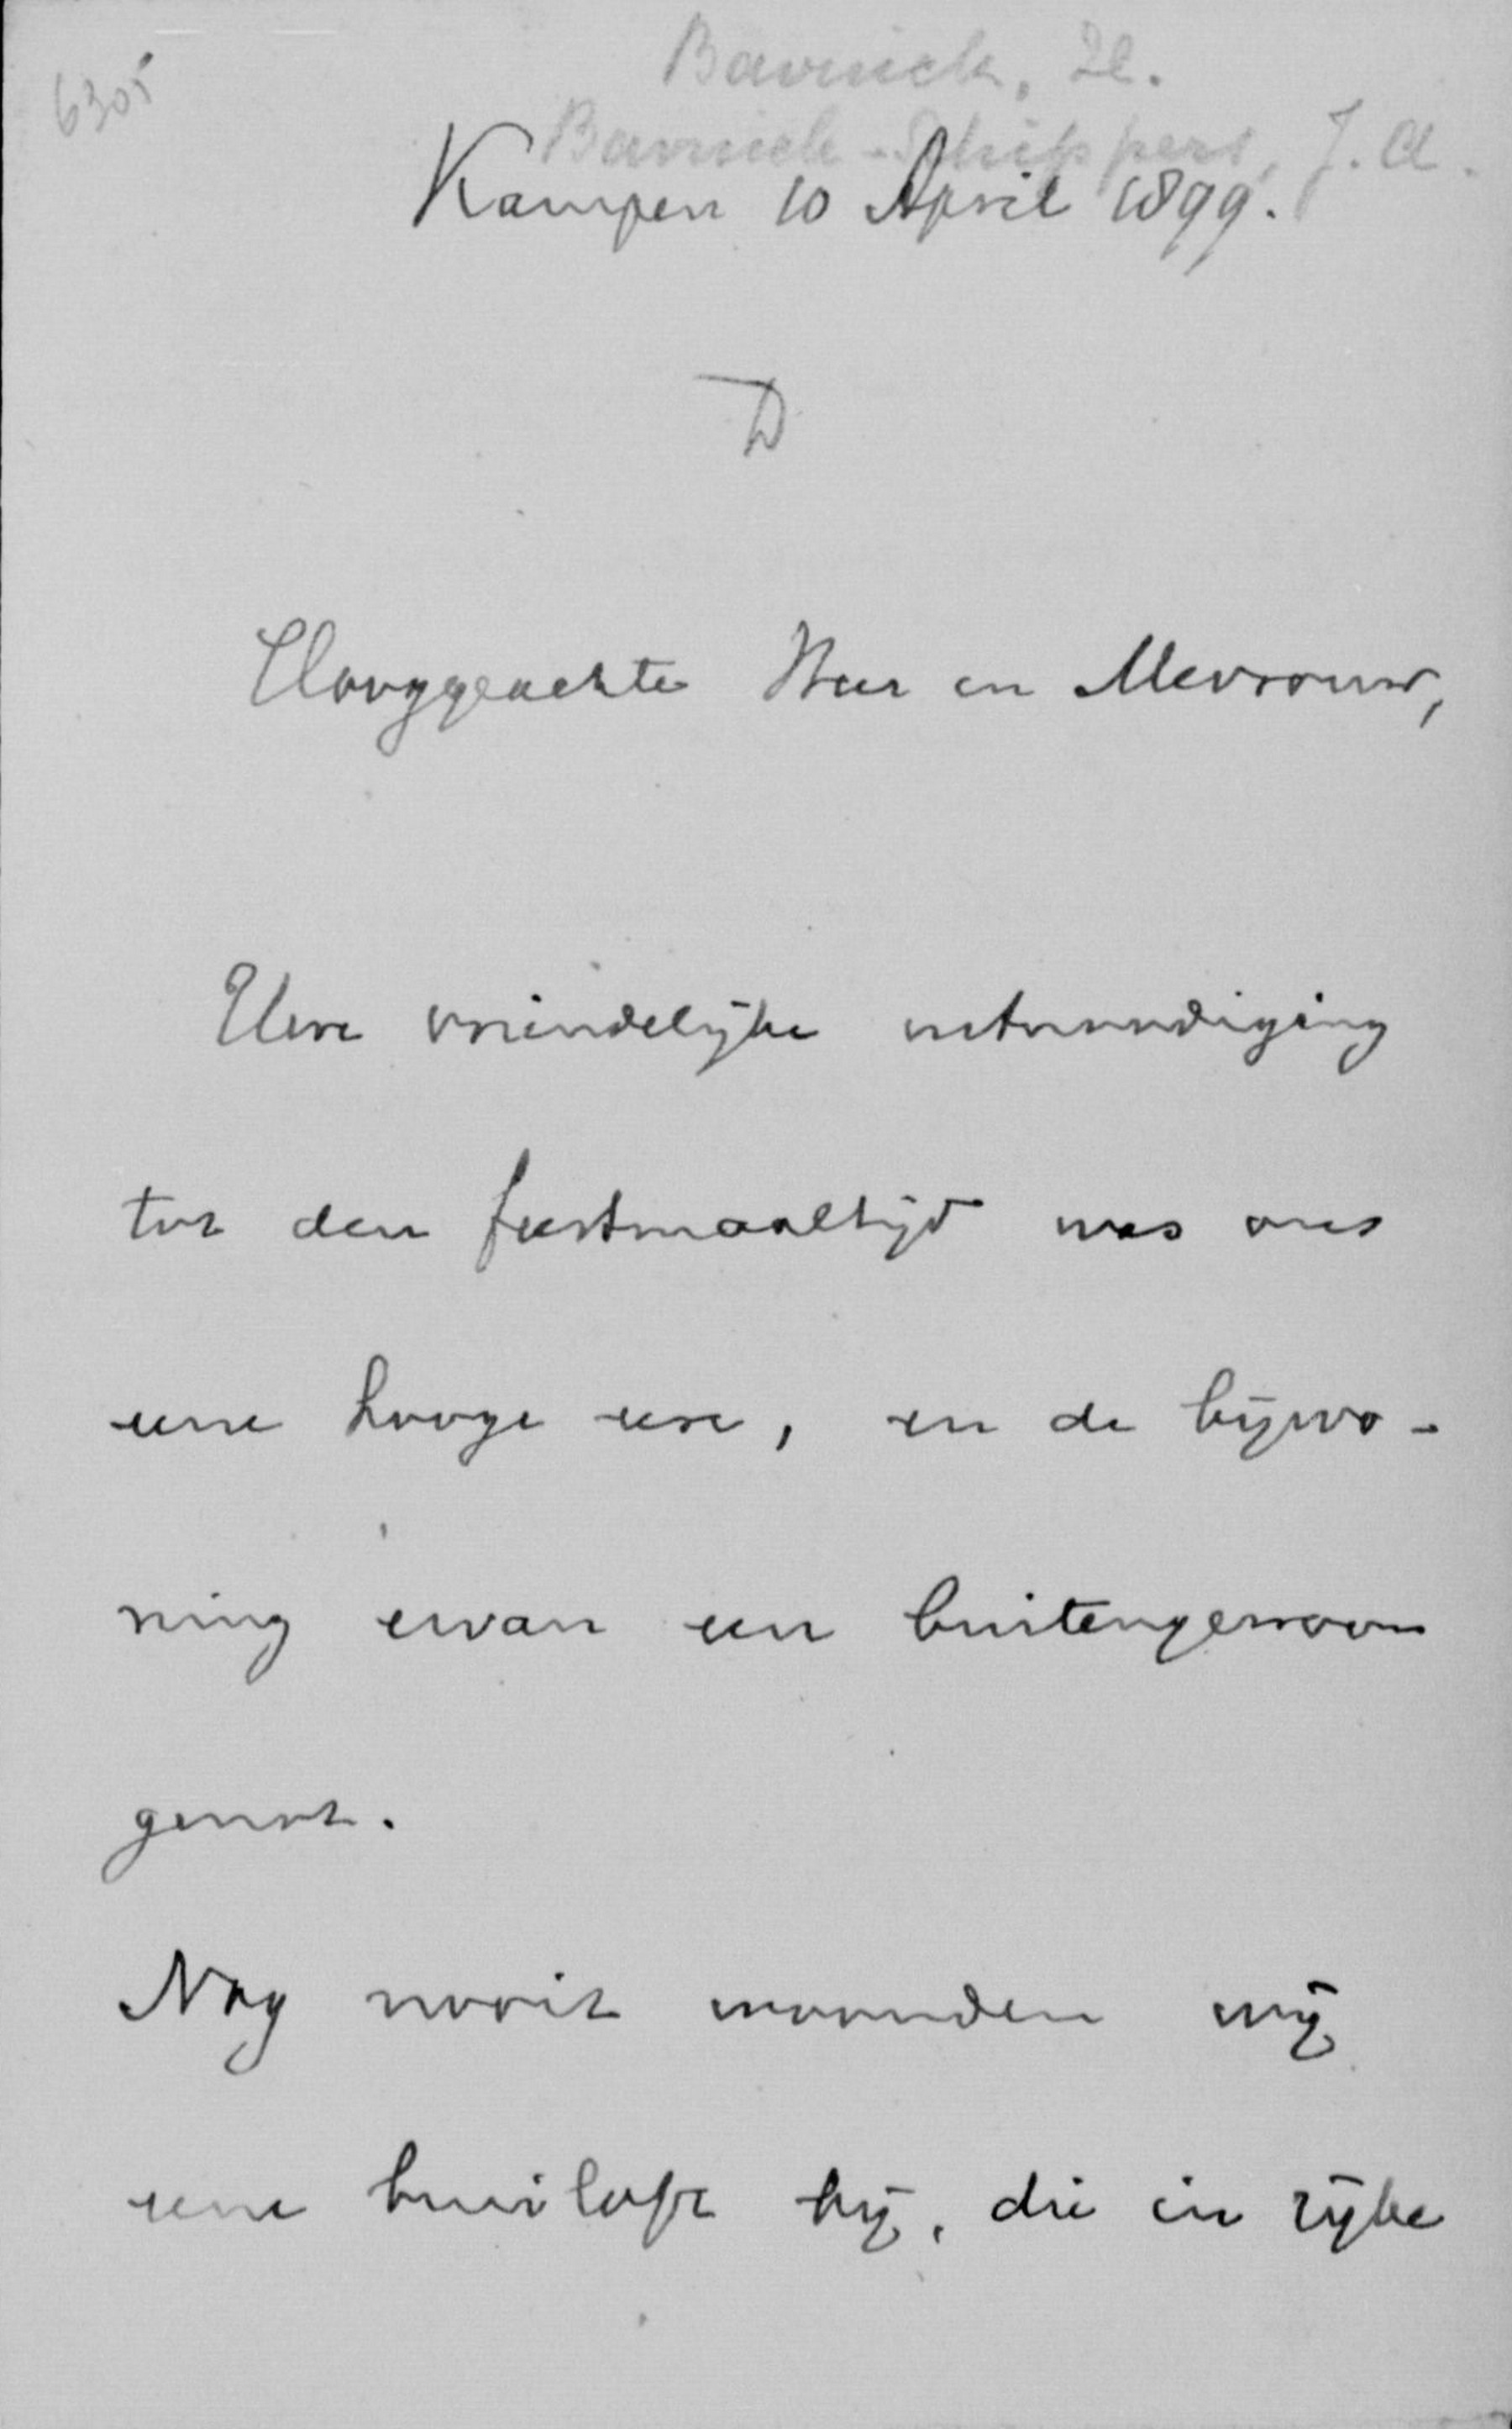 6305
Bavinck, H.
Bavinck-Schippers, J.A.
Kampen 10 April 1899.
D
Hooggeachte Heer en Mevrouw,
Uwe vriendelijke uitnoodiging
tot den feestmaaltijd was ons
eene hooge eere, en de bijwo-
ning ervan een buitengewoon
genot.
Nog nooit woonden wij
eene bruiloft bij, die in rijke